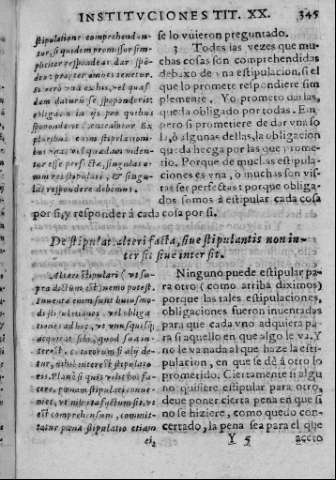 INSTITVCIONES TIT. XX. 345
stipulatione comprehendun-
tur, si quidem promissor sim-
pliciter respondeat dar spō-
deo: propter omnes tenetur.
si verò vna ex his, vel quas-
dam daturū se spondoderit
obligatio in ijs pro quibus
sponderit
bus
esse perfectæ, singulas e-
nim res stipulari, & singu-
las respondere debemus.
se lo vuieren preguntado.
3 Todas las vezes que mu-
chas cosas son comprehendidas
debaxo de vna estipulacion, si el
que lo promete respondiere sim
plemente, Yo prometo darlas,
queda obligado por todas. Em
pero si prometiere de dar vna so
la, ò algunas dellas, la obligacion
queda hecha por las que prome-
tio. Porque de muchas estipula-
ciones es vna, o muchas son vis-
tas ser perfectas: porque obliga-
dos somos à estipular cada cosa
por si, y responder à cada cosa por si.
De stipulat. alteri facta, siue stipulantis non in-
ter sit siue inter sit.
Alteri stipulari (vt su-
pra dictum est) nemo potest.
Inuentæ enim sunt huiusmo-
di stipulationes, vel obliga
tiones ad hoc, vt vnusquisq;
acquirat sibi, quod sua in-
terest. cæterum si alij de-
tur, nihil interest stipulato
ris. Planè si quis velit hoc fa-
cere, pœnam stipulari conue-
niet, vt nisi ita factum sit, vt
est comprehensum, commit-
tatur pœna stipulatio etiam
ei,
Ninguno puede estipular pa
ra otro (como arriba diximos)
porque las tales estipulaciones,
obligaciones fueron inuentadas
para que cada vno adquiera pa-
ra si aquello en que algo le va. Y
no le va nada al que haze la esti-
pulacion, en que se dè à otro lo
prometido. Ciertamente si algu
no quisiere estipular para otro,
deue poner cierta pena en que si
no se hiziere, como quedo con-
certado, la pena sea para el que
Y 5 accio